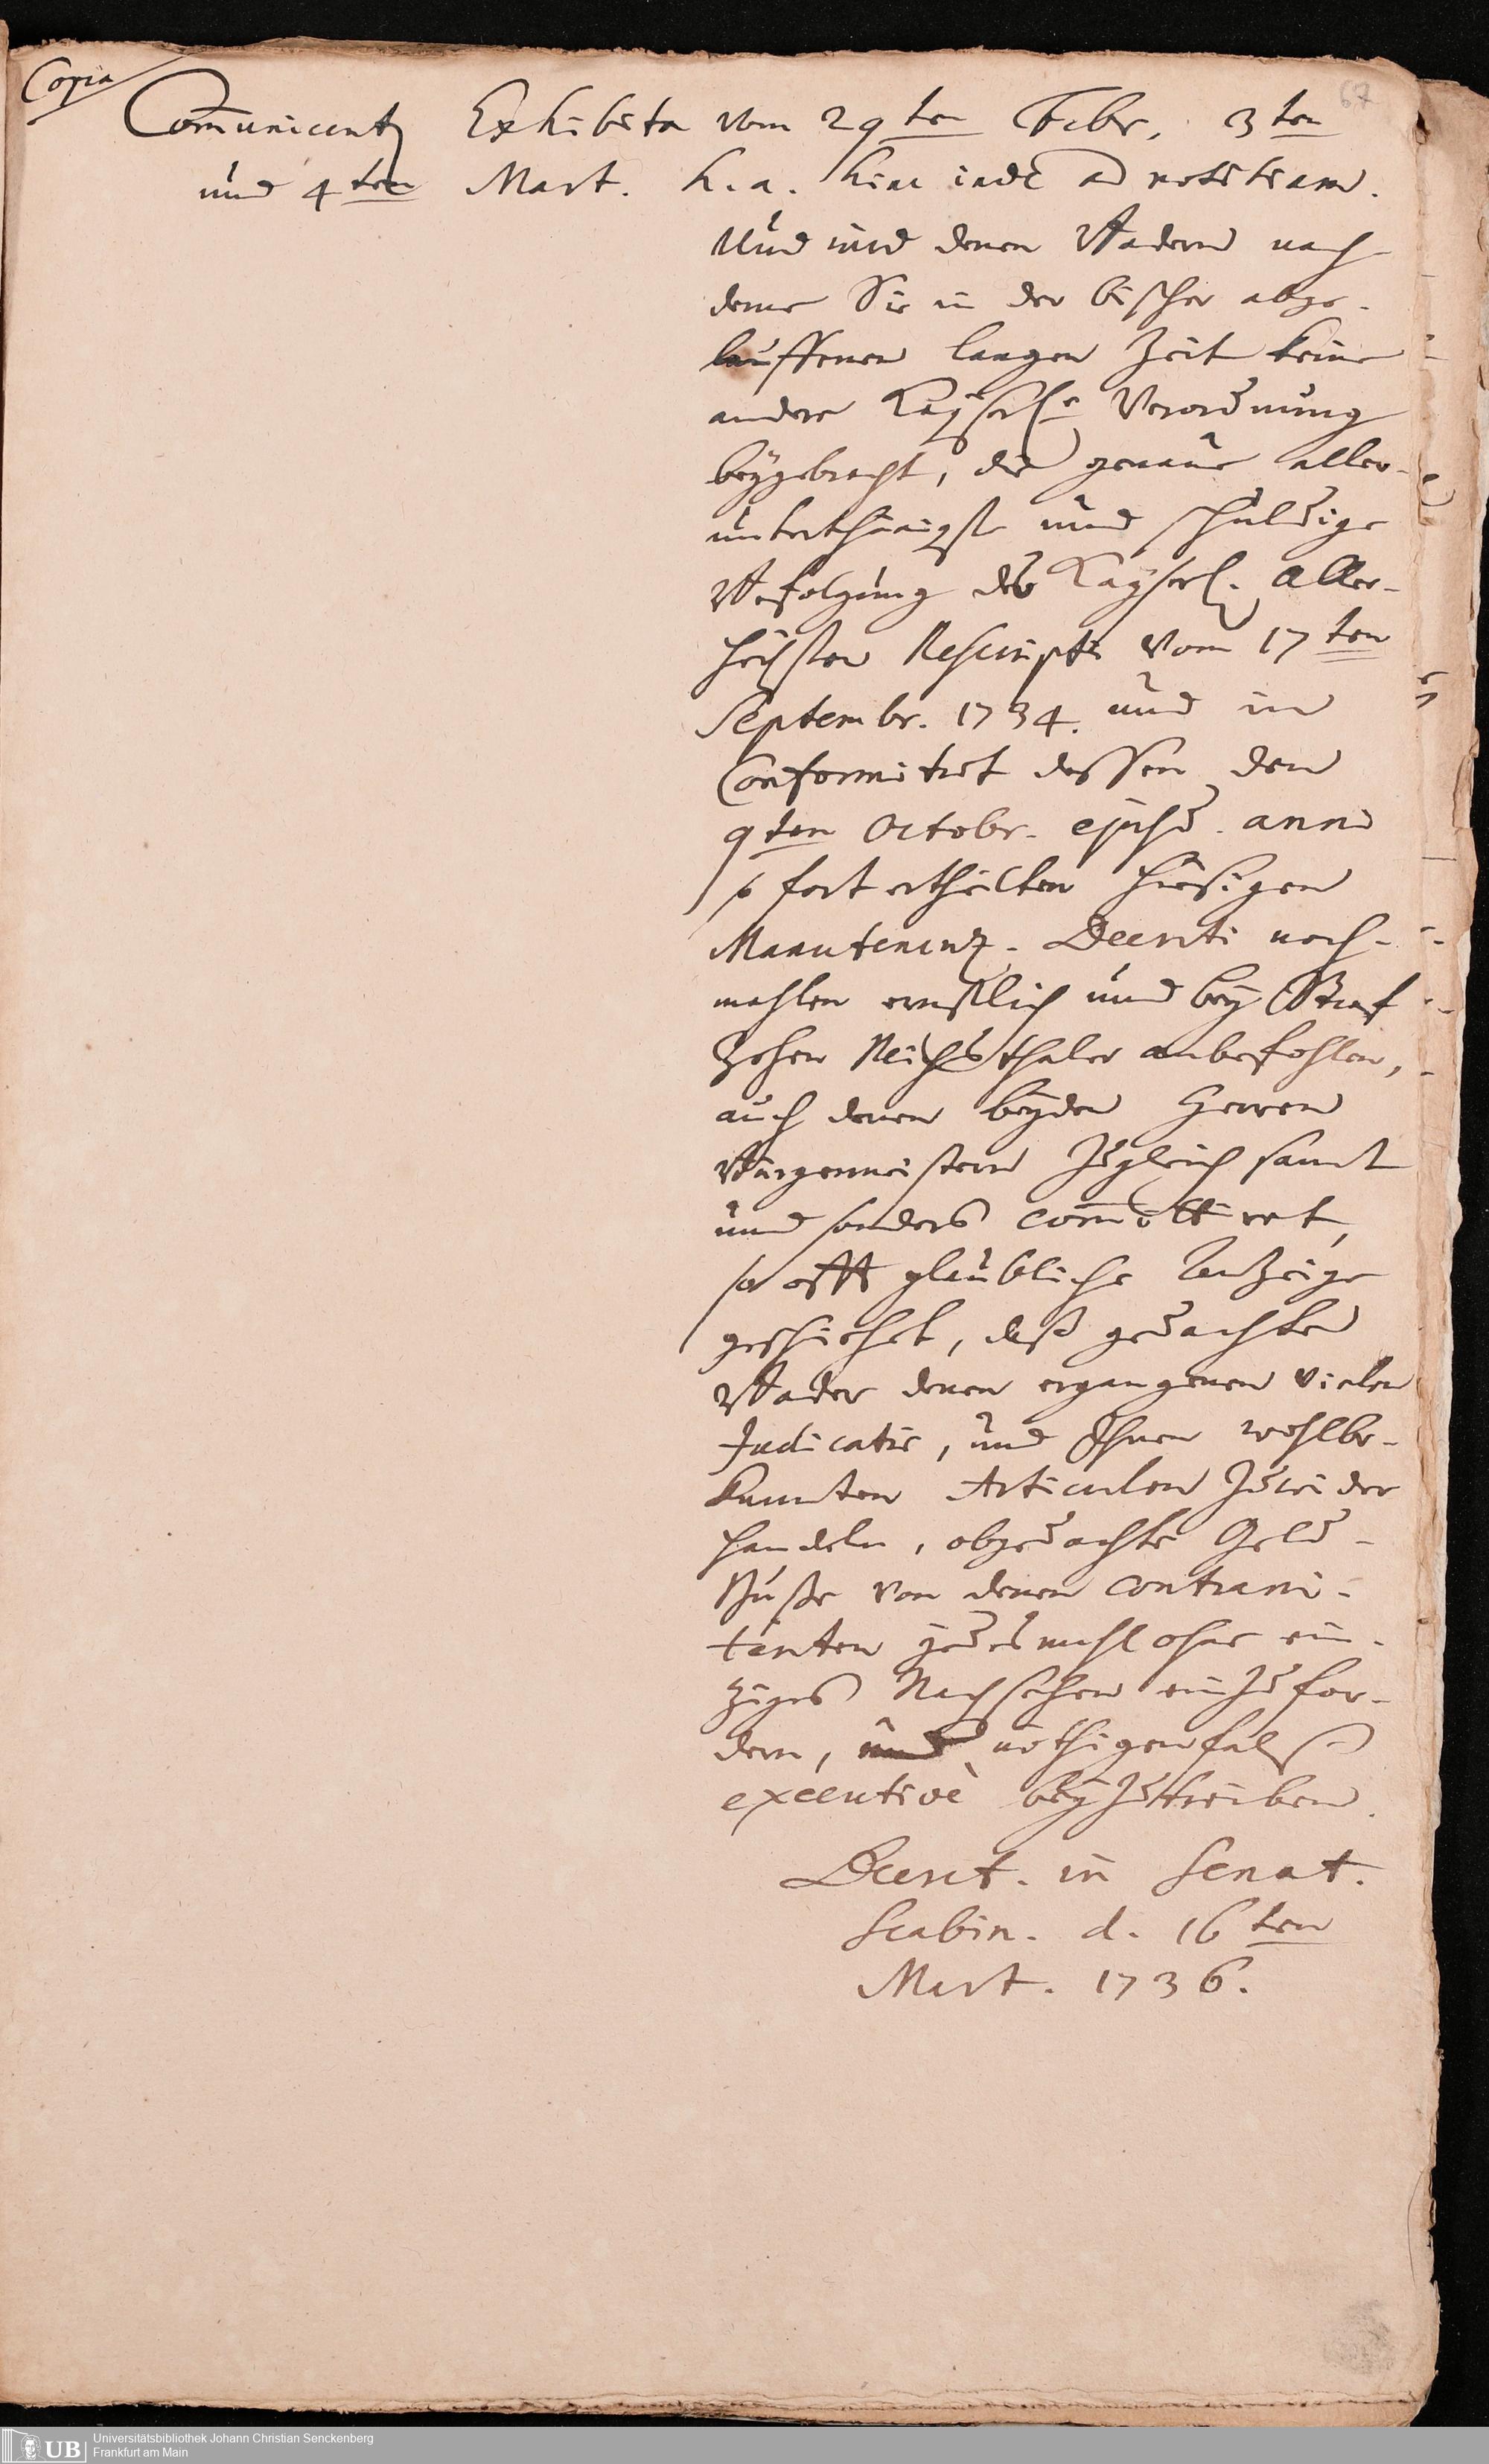 Copia
67
Com̄unicentz Exhibita vom 29ten Febr. 3ten
und 4ten Mart. h. a. hinc inde ad notitiam.
Und wird denen Badern nach
deme Sie in der bißher abge-
lauffenen langen Zeit keine
andere Kayserl.e Verordnung
beygebracht, die genaue aller-
unterthänigste und schuldige
Befolgung des Kayserl. Aller-
höchsten Rescripti vom 17ten
Septembr. 1734. und in
Conformitæt dessen den
9ten Octobr. ejusd. anni
so fort ertheilten hiesigen
Manutenenz-Decreti noch-
mahlen ernstlich und bey Straf
Zehen Reichsthaler anbefohlen,
auch denen beyden Herren
Burgermeistern zugleich samt
und sonders com̄ittiret,
so offt glaubliche Anzeige
geschiehet, daß gedachte
Bader denen ergangenen vielen
Judicatis, und Ihnen wohlbe-
kannten Articulen zuwider
handeln, obgedachte Geld-
Buße von denen contrave-
tenten jedesmahl ohne ein-
ziges Nachsehen einzufor-
dern, und nöthigenfalß
executivè beyzutreiben.
Decret. in Senat.
Scabin. d. 16ten
Mart. 1736.
UB
Universitätsbibliothek Johann Christian Senckenberg
Frankfurt am Main